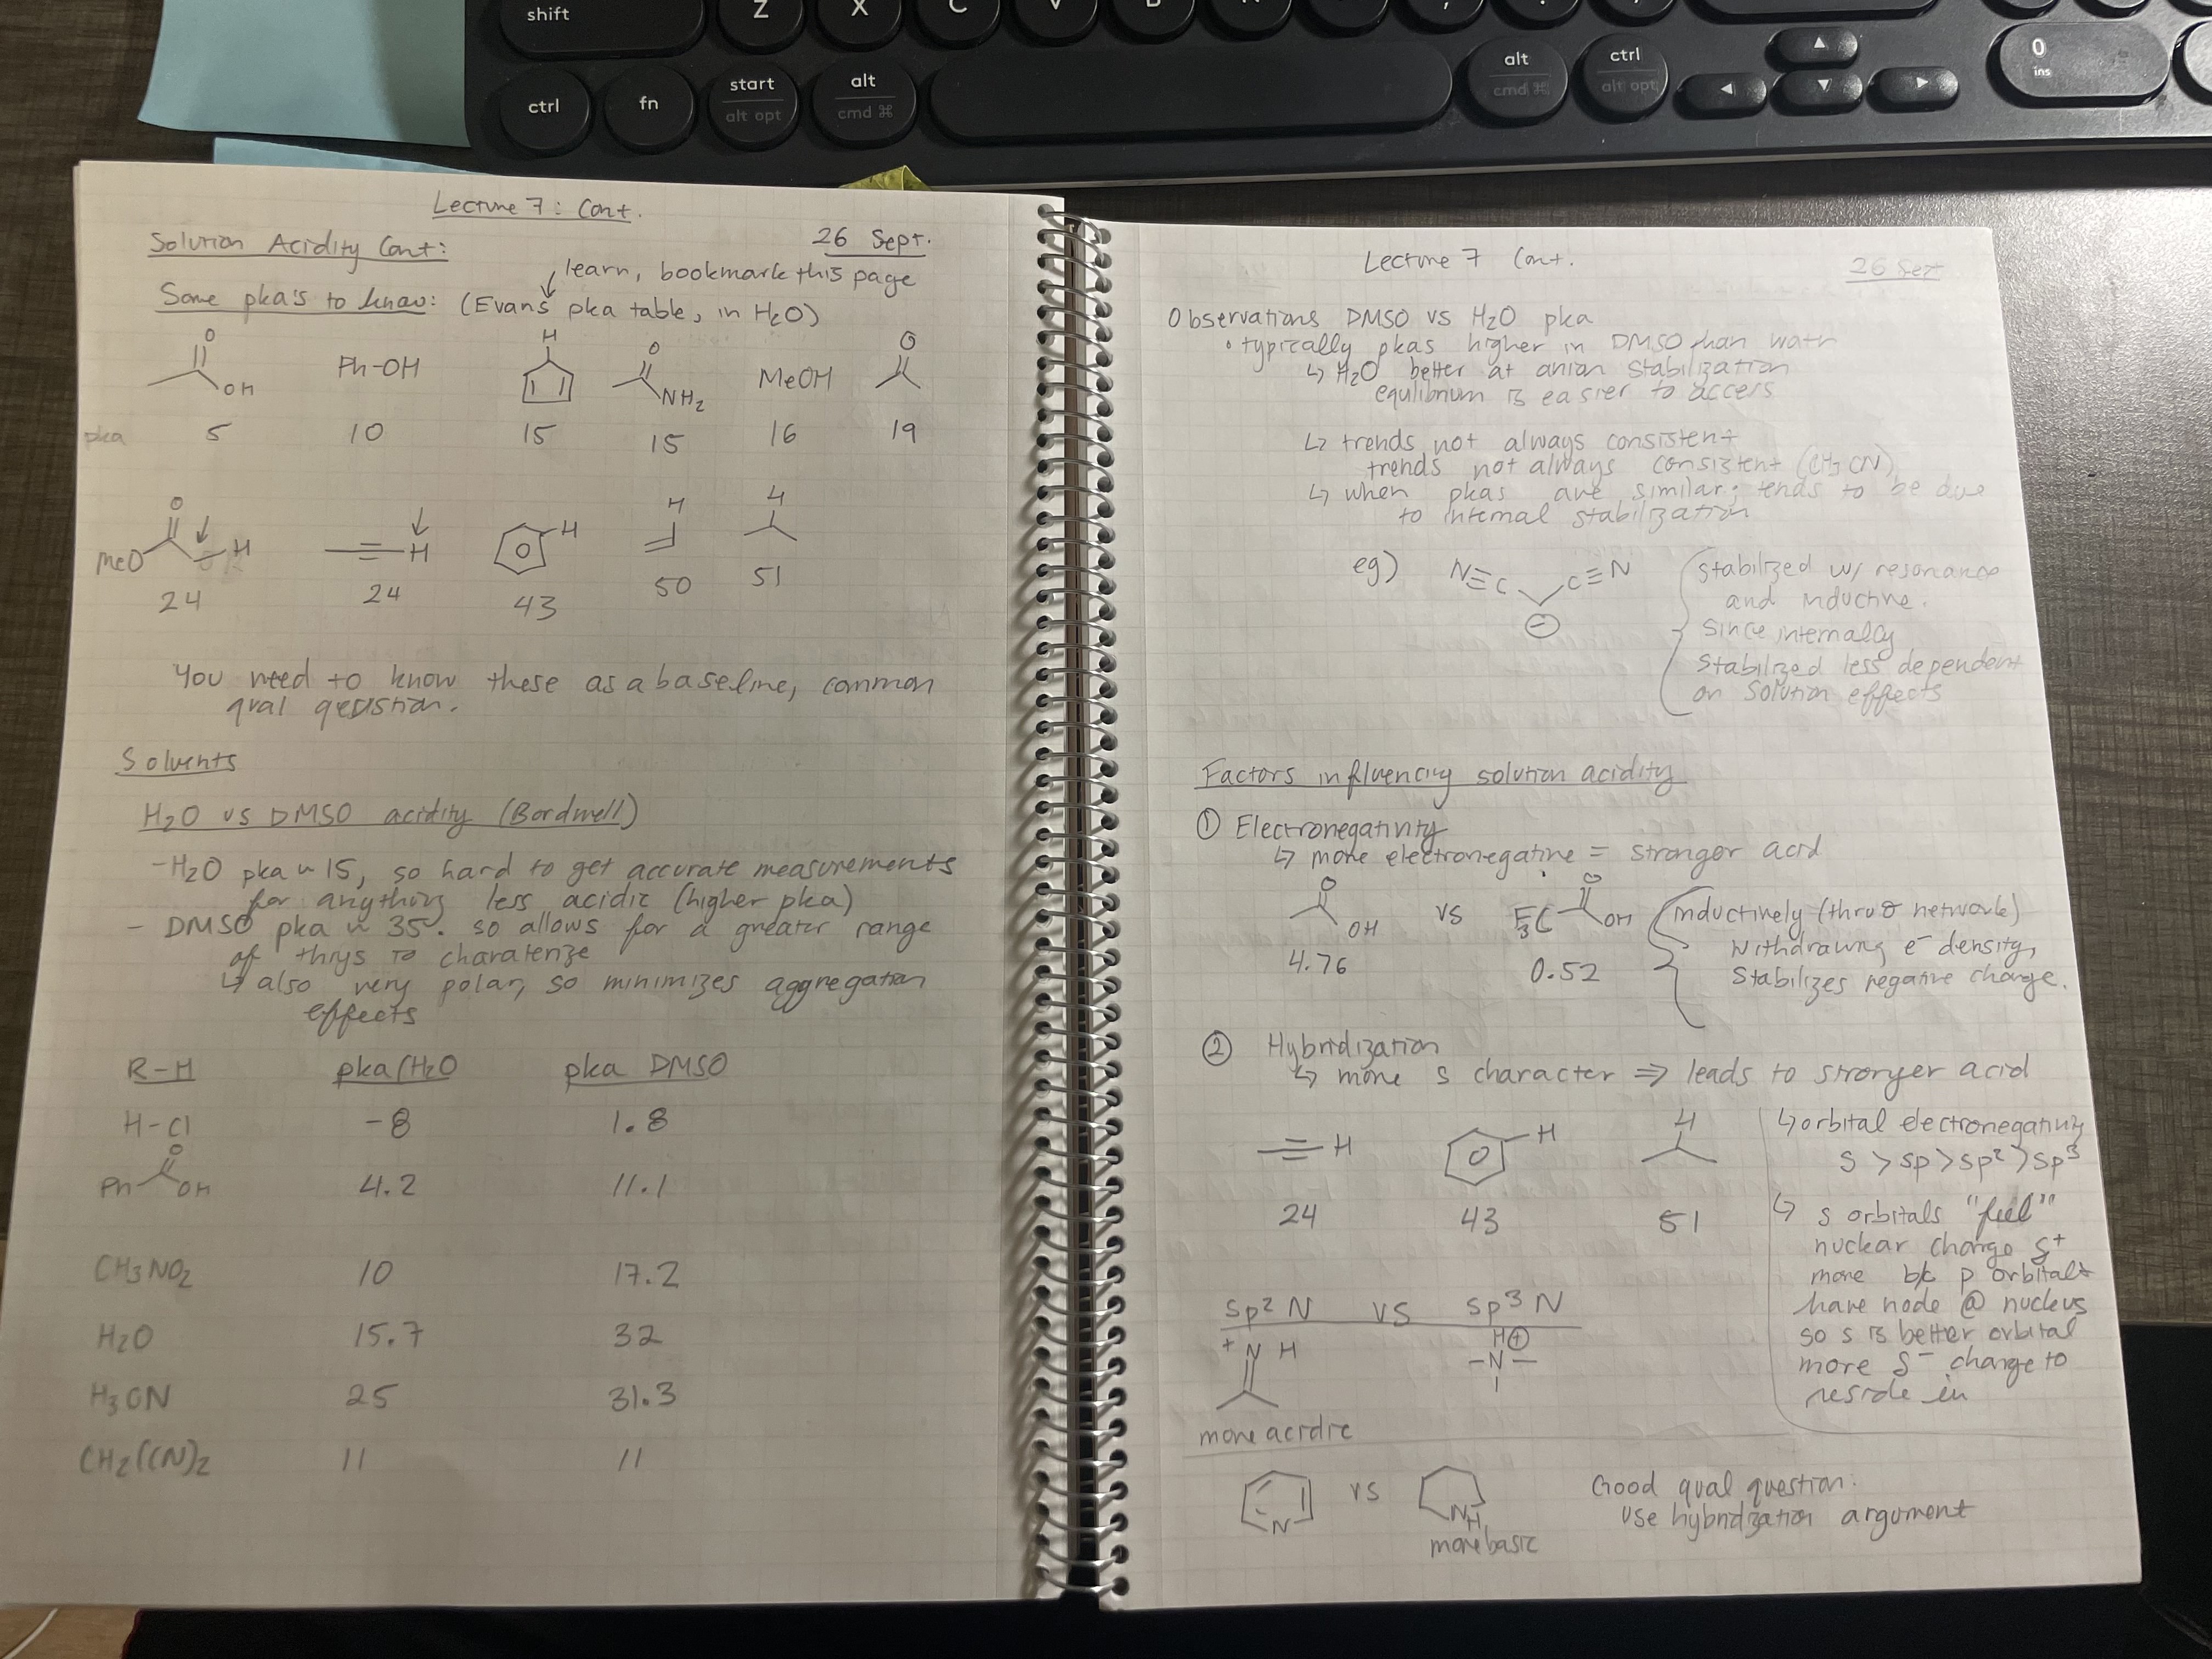 shift Z X C V B
ctrl fn start alt opt alt cmd ⌘ alt cmd ⌘ ctrl alt opt 0 ins
Lecture 7: Cont.
26 Sept.
Solution Acidity Cont:
learn, bookmark this page
Some pka's to know: (Evans pka table, in H2O)
O OH Ph-OH H O NH2 MeOH O
pka 5 10 15 15 16 19
O MeO H H H H H
24 24 43 50 51
You need to know these as a baseline, common
qual qeustion.
Solvents
H2O vs DMSO acidity (Bordwell)
- H2O pka ~ 15, so hard to get accurate measurements
for anything less acidic (higher pka)
- DMSO pka ~ 35. so allows for a greater range
of things to charaterize
↳ also very polar, so minimizes aggregation
effects
R-H pka (H2O pka DMSO
H-Cl -8 1.8
Ph O OH 4.2 11.1
CH3NO2 10 17.2
H2O 15.7 32
H3CN 25 31.3
CH2(CN)2 11 11
Lecture 7 Cont.
26 Sept
Observations DMSO vs H2O pka
• typically pkas higher in DMSO than watr
↳ H2O better at anion stabilization
equlibrium is easier to access
↳ trends not always consistent
trends not always consistent (CH3CN)
↳ when pkas are similar; tends to be due
to internal stabilization
eg) N≡C C≡N ⊖
stabilized w/ resonance
and inductive.
Since internally
stabilized less dependent
on solution effects
Factors influencing solution acidity
① Electronegativity
↳ more electronegative = stronger acid
O OH vs F3C O OH
4.76 0.52
inductively (thru σ network)
withdrawing e- density,
stabilizes negative charge.
② Hybridization
↳ more s character ⇒ leads to stronger acid
≡-H H H
24 43 51
↳ orbital electronegativity
s > sp > sp2 > sp3
↳ s orbitals "feel"
nuclear charge δ+
more b/c p orbitals
have node @ nucleus
so s is better orbital
more δ- charge to
reside in
sp2 N vs sp3 N
+ N H H ⊕ -N-
more acidic
N vs NH
more basic
Good qual question.
use hybridization argument